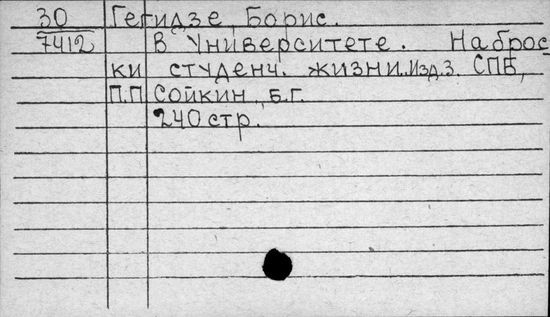 30 Гегидзе, Борис.
7412 В Университете. Наброс
ки студенч. жизни. Изд.3. СПБ,
П.П Сойкин, Б.Г.
240 стр.